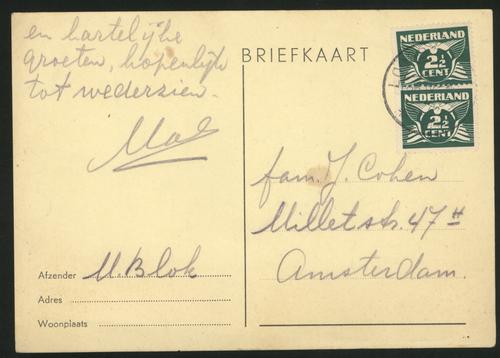 en hartelijke
groeten, hopenlijk
tot wederzien.
BRIEFKAART
NEDERLAND
2½
CENT
NEDERLAND
2½
CENT
fam. J. Cohen
Milletstr. 47 II
Amsterdam.
Afzender M. Blok
Adres
Woonplaats